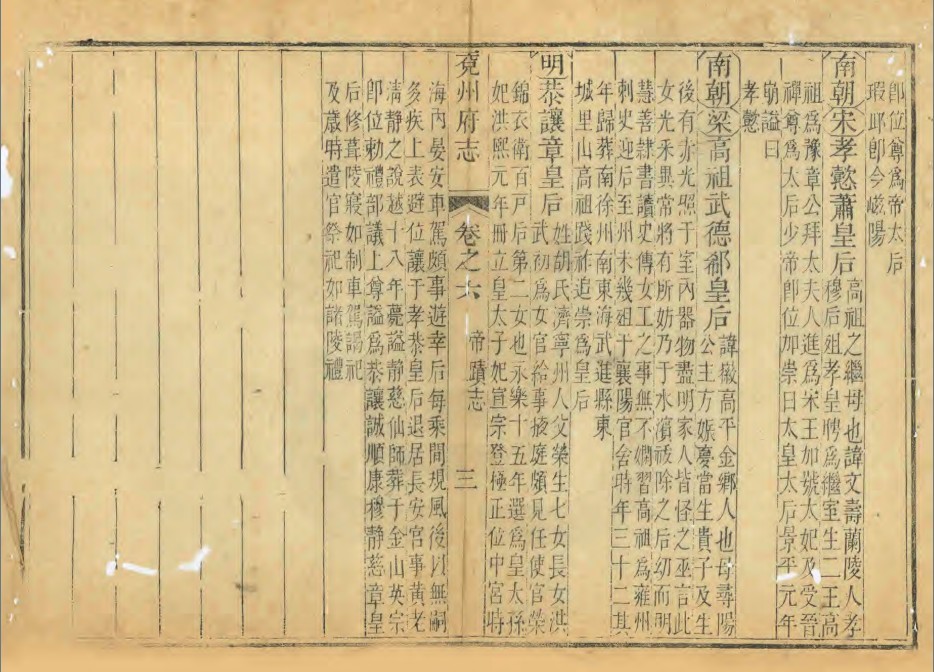 即位尊爲帝太后
瑕邱卽今嵫陽
南朝宋孝懿蕭皇后
高祖之繼母也諱文壽蘭陵人孝
穆后姐孝皇聘爲繼室生二王高
祖爲豫章公拜太夫人進爲宋王加號太妃及受晉
禪尊爲太后少帝卽位加崇曰太皇太后景平元年
崩謚曰
孝懿
南朝梁高祖武德郗皇后
諱徽高平金鄉人也母尋陽
公主方娠夢當生貴子及生
後有赤光照于室內器物盡明家人皆怪之巫言此
女光采異常將有所妨乃于水濱祓除之后幼而明
慧善隸書讀史傳女工之事無不嫻習高祖爲雍州
刺史迎后至州未幾殂于襄陽官舍時年三十二其
年歸葬南徐州南東海武進縣東
城里山高祖踐祚追崇爲皇后
明恭讓章皇后
姓胡氏濟寧州人父榮生七女長女洪
武初爲女官給事掖庭頗見任使官榮
錦衣衛百戸后第二女也永樂十五年選爲皇太孫
妃洪熙元年冊立皇太子妃宣宗登極正位中宮時
兗州府志
卷之六
帝蹟志
三
海內晏安車駕頗事遊幸后每乘間規風後以無嗣
多疾上表避位讓于孝恭皇后退居長安宫事黃老
清静之說越十八年薨謚静慈仙師葬于金山英宗
卽位勅禮部議上尊謚爲恭讓誠順康穆静慈章皇
后修葺陵寢如制車駕謁祀
及歲時遣官祭祀如諸陵禮